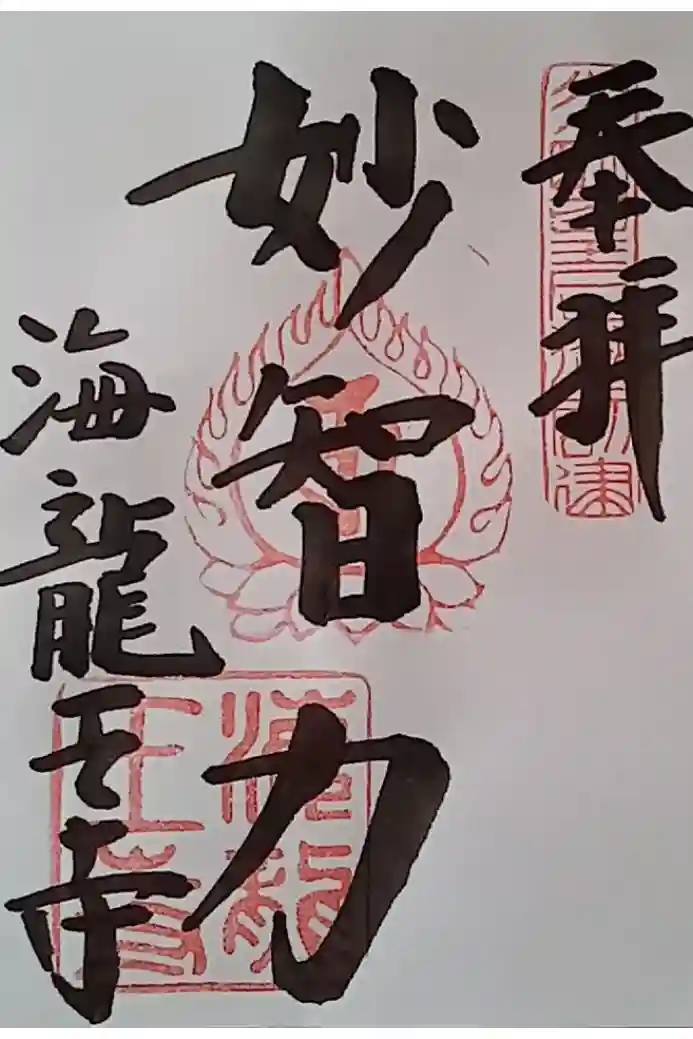 奉拝
妙智力
海龍王寺
海龍王寺